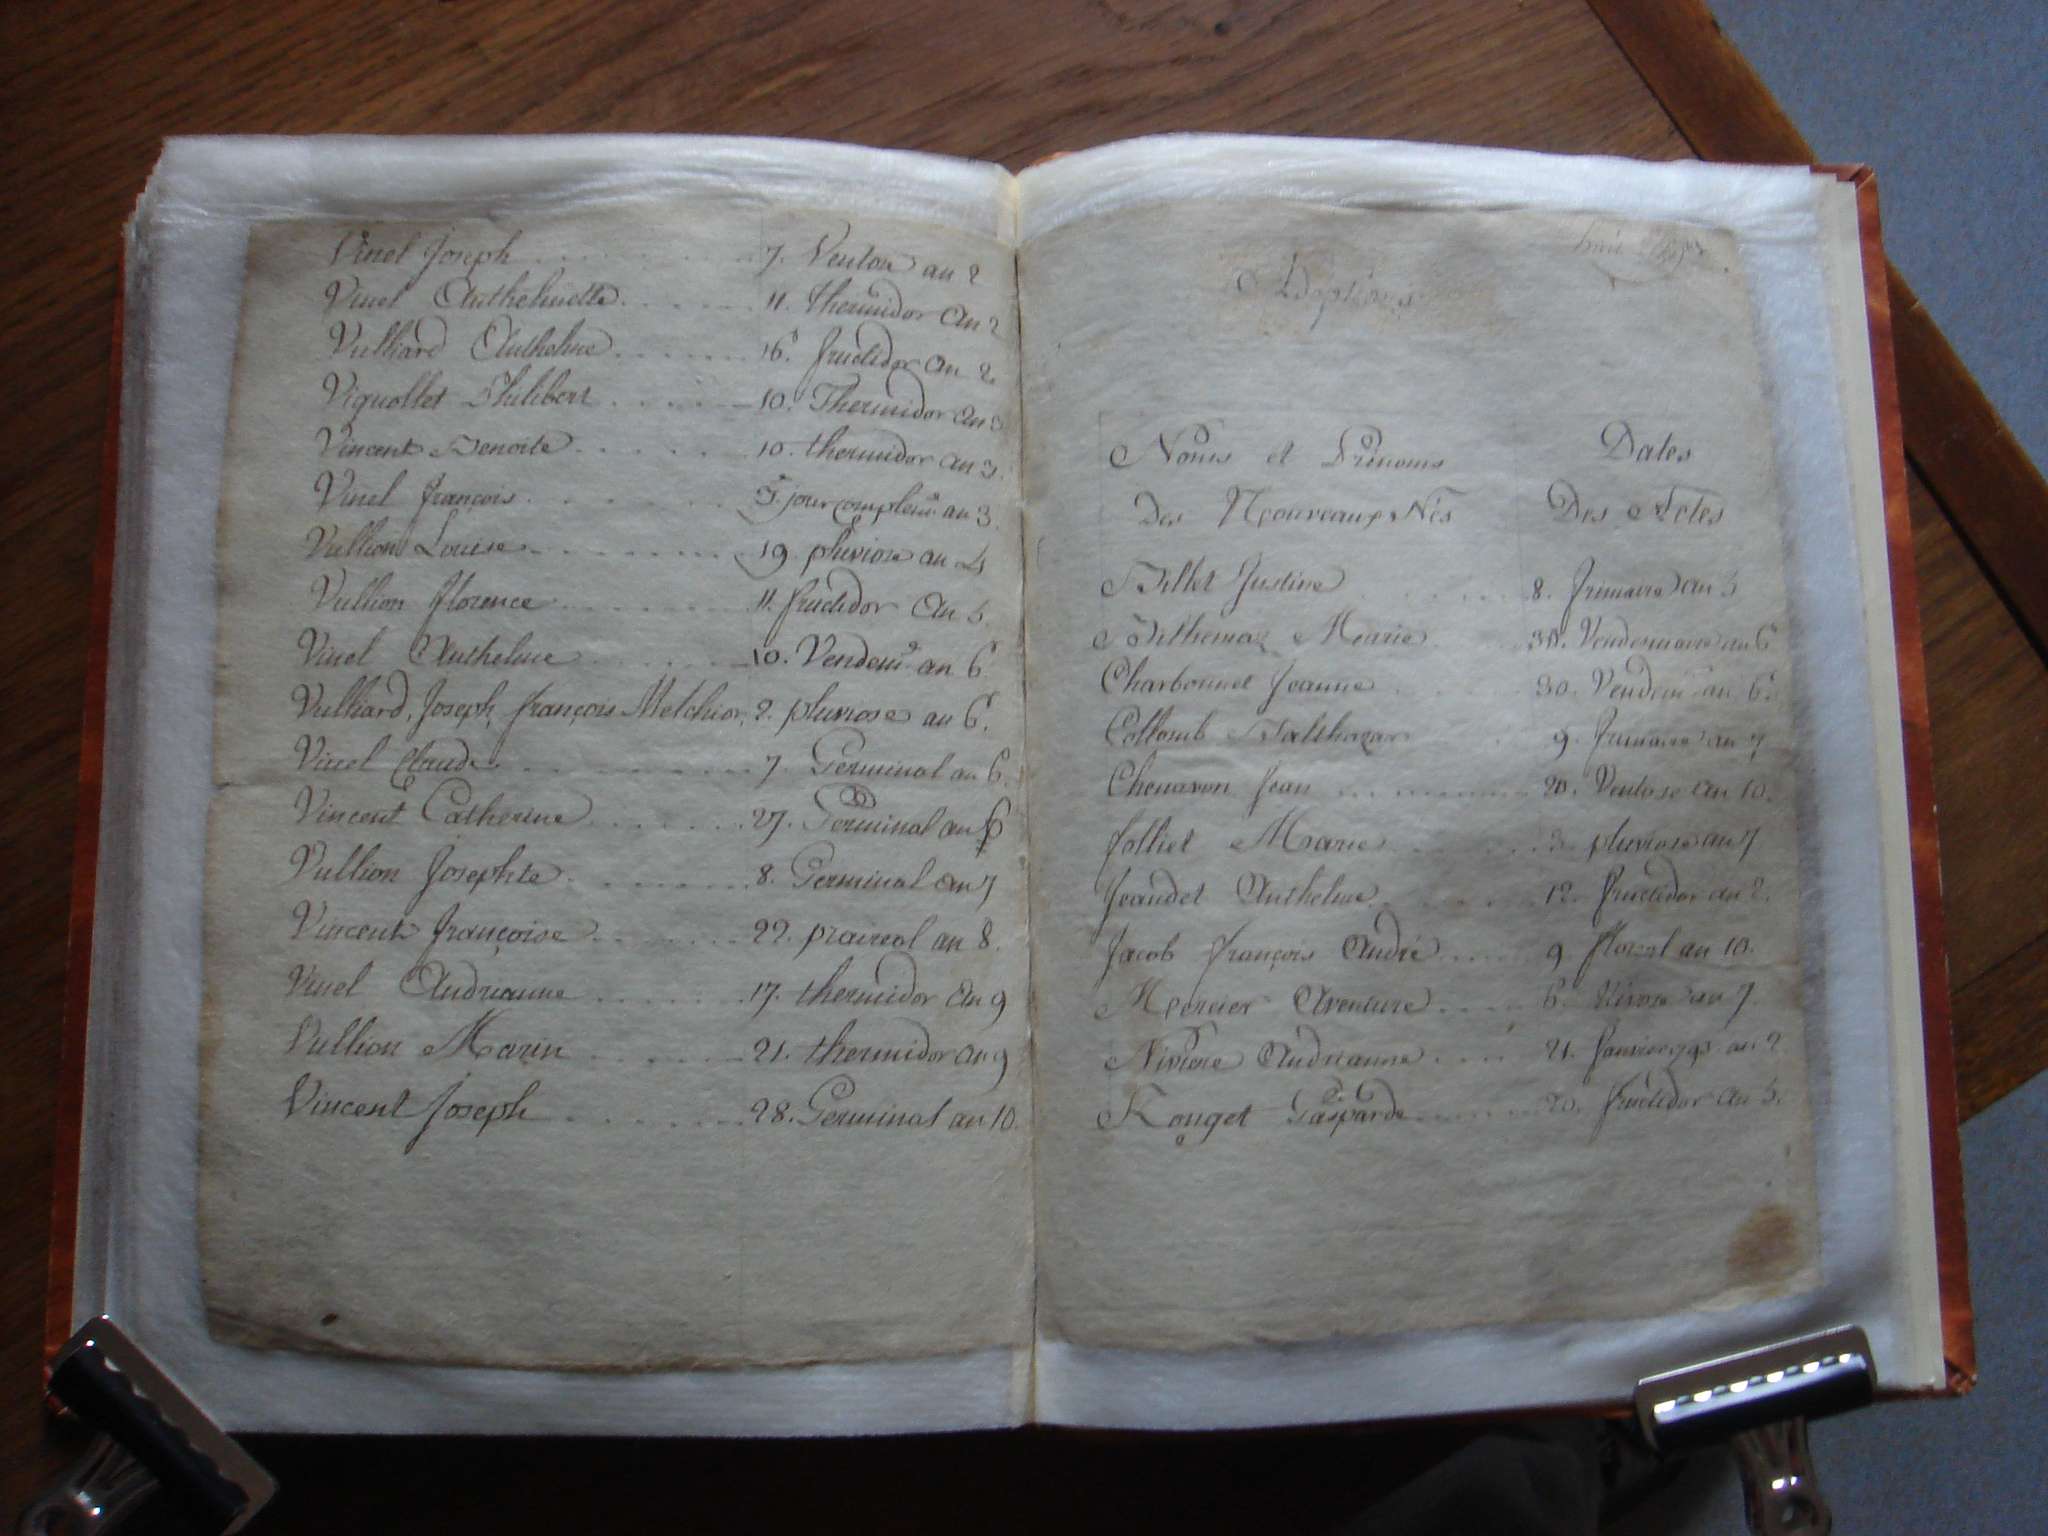 Vinel Joseph 7. Ventose an 2
Vinel Anthelmette 11. thermidor an 2
Vulliard Anthelme 16. fructidor an 2
Viguollet Philibert 10. Thermidor an 3
Vincent Benoite 10. thermidor an 3.
Vinel françois 5. jour complem.re an 3.
Vullion Louise 19. pluviose an 4
Vullion florence 11. fructidor an 5
Vinel Anthelme 10. Vendem.re an 6
Vulliard, Joseph françois Melchior, 2. pluviose an 6.
Vinel Claude 7. Germinal an 6.
Vincent Catherine 27. Germinal an 6
Vullion Josephte 8. Germinal an 7
Vincent françoise 22. praireal an 8.
Vinel Andrianne 17. thermidor an 9
Vullion Marin 21. thermidor an 9
Vincent Joseph 28. Germinal an 10.
Adoptions
Noms et Prénoms Dates
Des Nouveaux Nés Des Actes
Billet Justine 8. frimaire an 3
Bithemaz Marie 30. Vendemiaire an 6
Charbonnet Jeanne 30. Vendem.re an 6.
Collomb Balthazar 9. frimaire an 7
Chenavon Jean 20. Ventose an 10.
Jolliet Marie 3. pluviose an 7
Jeandet Anthelme 12. fructidor an 2.
Jacob françois André 9. floreal an 10.
Mercier Aventure 6. Nivose an 7.
Nivière Andrianne 21. Janvier 1793 an 2
Rouget Gasparde 20. fructidor an 3.